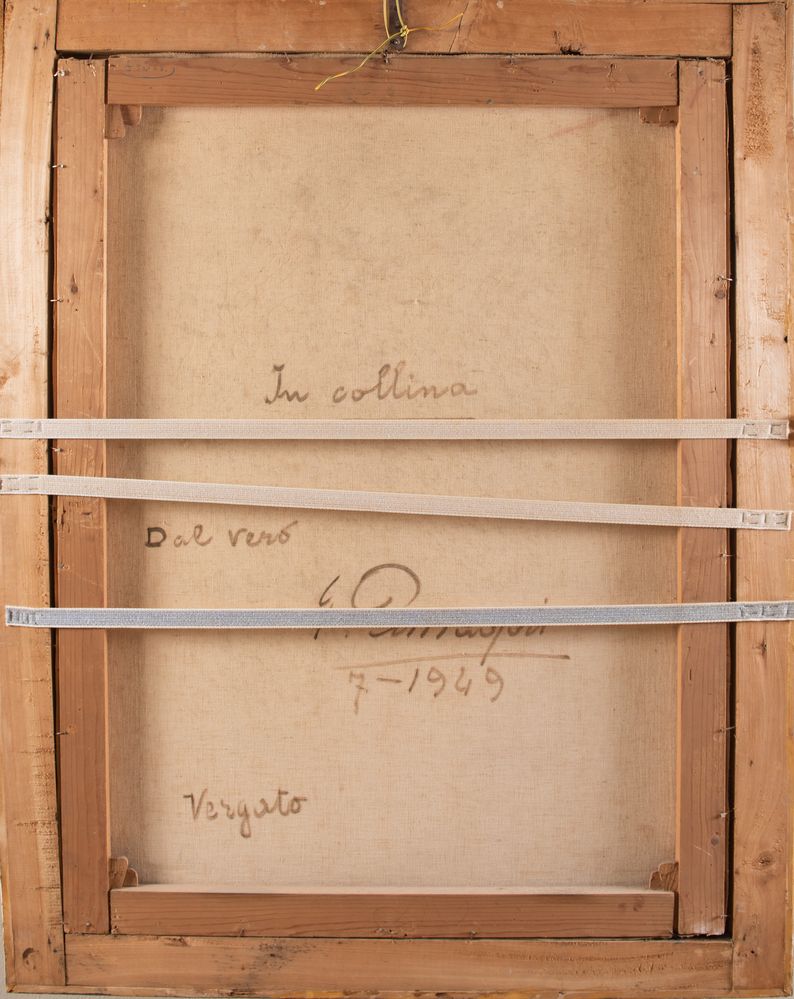 In collina
Dal vero
7-1949
Vergato